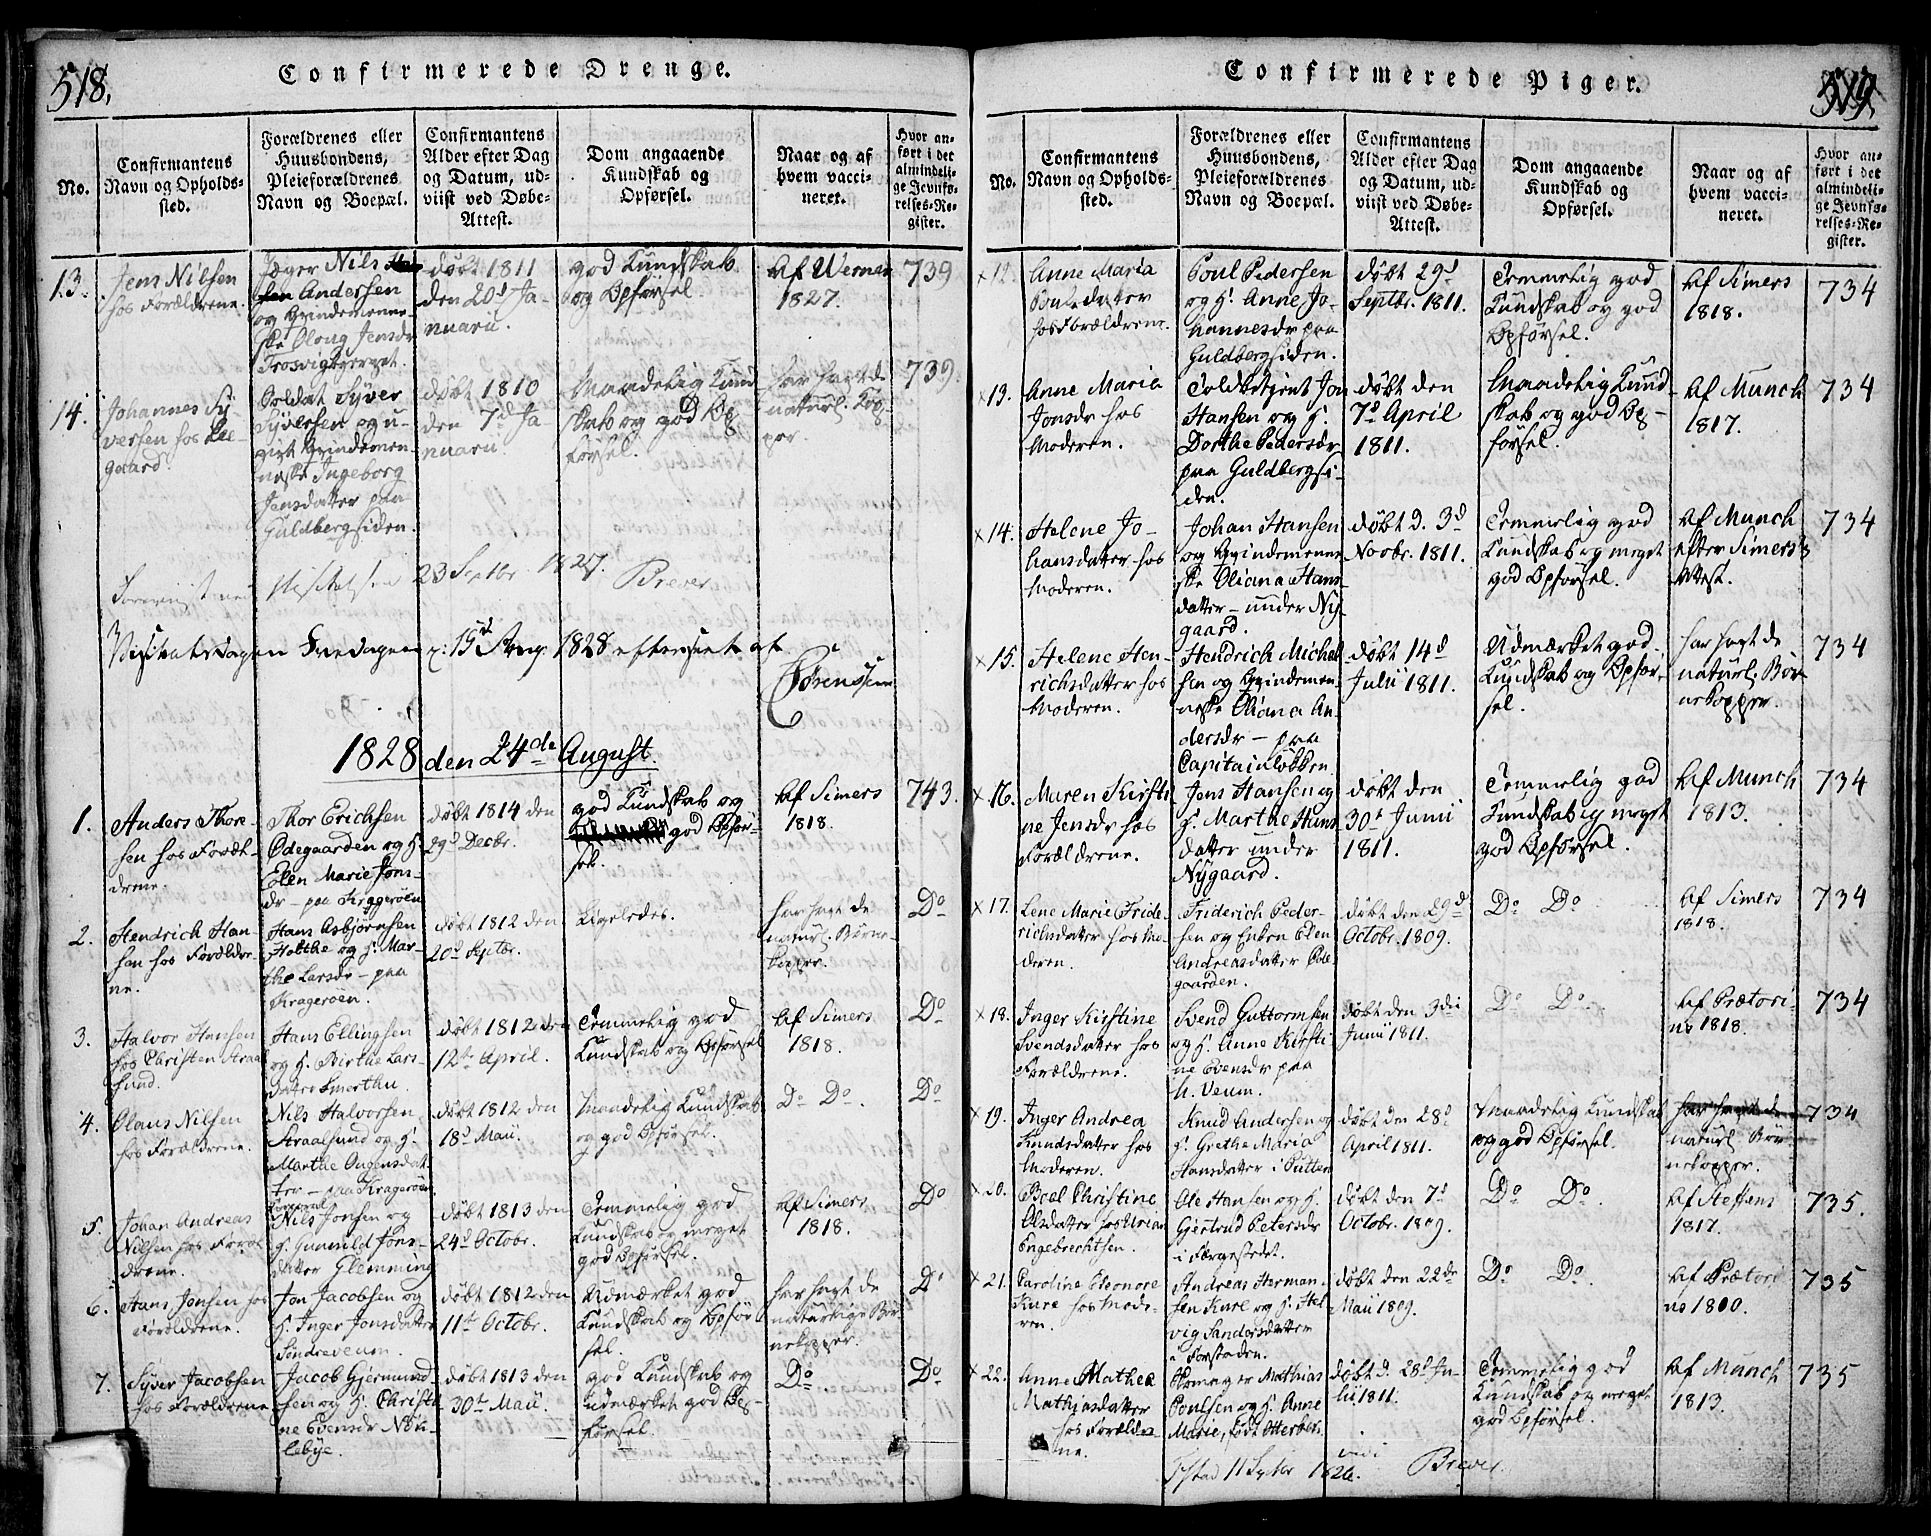 518.
Confirmerede Drenge.
No.
Confirmantens
Navn og Opholds-
sted.
Forældrenes eller
Huusbondens,
Pleieforældrenes
Navn og Boepæl.
Confirmantens
Alder efter Dag
og Datum, ud-
viist ved Døbe-
Attest.
Dom angaaende
Kundskab og
Opførsel.
Naar og af
hvem vacci-
neret.
Hvor an-
ført i det
almindeli-
ge Jevnfø-
relses-Re-
gister.
13.
Jens Nilsen
hos Forældrene.
Jæger Nils
Andersen
og Qvindemenne-
ske Oloug Jensdr
Trosvigbjerget.
døbt 1811
den 20d Ja-
nuarii.
god Kundskab
og Opførsel.
Af Werner
1827.
739
14.
Johannes Sy-
versen hos Lie-
gaard.
Soldat Syver
Syversen og u-
gift Qvindemen-
neske Ingeborg
Jensdatter paa
Guldbergsiden.
døbt 1810
den 7d Ja-
nuarii.
Maadelig Kund-
skab og god Op-
førsel.
har havt de
naturl. Kop-
per.
739.
23 Septbr. 1827. Brever
Visitatsdagen Fredagen d: 15d Aug. 1828 efterseet af
Sørenssen
1828 den 24de August.
1.
Anders Thor-
sen hos Foræl-
drene.
Thor Erichsen
Ødegaarden og H.
Elen Marie Jons-
dr - paa Kragerøen
døbt 1814 den
29d Decbr.
god Kundskab og
god Opfør-
sel.
Af Simers
1818.
743.
2.
Hendrich Han-
sen hos Forældre-
ne.
Hans Asbjørnsen
Holthe og H. Mar-
the Larsdr - paa
Kragerøen.
døbt 1812 den
20d Septbr.
Ligeledes.
har havt de
naturl. Børne-
kopper.
Do
3.
Halvor Hansen
hos Christen Straal-
sund.
Hans Ellingsen
og H. Birthe Lars-
datter Smerthu.
døbt 1812 den
12te April.
Temmelig god
Kundskab og Opførsel
Af Simers
1818.
Do
4.
Olaus Nilsen
hos Forældrene.
Nils Halvorsen
Straalsund og H.
Marthe Ougensdat-
ter - paa Kragerøen
døbt 1812 den
18d Maii.
Maadelig Kundskab
og god Opførsel.
Do Do.
Do
5.
Johan Andreas
Nilsen hos Foræl-
drene.
Nils Jonsen og
H. Gunnild Jons-
datter Glemming
døbt 1813 den
24d Octobr.
Temmelig god
Kundskab og meget
god Opførsel.
Af Simers
1818.
Do
6.
Hans Jonsen hos
Forældrene.
Jon Jacobsen og
H. Inger Jonsdatter
Søndreveum.
døbt 1812 den
11te Octobr.
Udmærket god
Kundskab og Opfør-
sel.
har havt de
naturlige Bør-
nekopper.
Do
7.
Syver Jacobsen
hos Forældrene
Jacob Gjermund-
sen og H. Christia-
ne Evensdr Nøk-
lebye.
døbt 1813 den
30te Maii.
god Kundskab og
udmærket god Op-
førsel.
Do
Do
519.
Confirmerede Piger.
No.
Confirmantens
Navn og Opholds-
sted.
Forældrenes eller
Huusbondens,
Pleieforældrenes
Navn og Boepæl.
Confirmantens
Alder efter Dag
og Datum, ud-
viist ved Døbe-
Attest.
Dom angaaende
Kundskab og
Opførsel.
Naar og af
hvem vacci-
neret.
Hvor an-
ført i det
almindeli-
ge Jevnfø-
relses-Re-
gister.
x 12.
Anne Maria
Poulsdatter
hos Forældrene.
Poul Pedersen
og H. Anne Jo-
hannesdr paa
Guldbergsiden.
døbt 29d
Septbr. 1811.
Temmelig god
Kundskab og god
Opførsel.
Af Simers
1818.
734
x 13.
Anne Maria
Jonsdr hos
Moderen.
Toldbetjent Jon
Hansen og H.
Dorthe Pedersdr
paa Guldbergsi-
den.
døbt den
7d April
1811.
Maadelig Kund-
skab og god Op-
førsel.
Af Munch
1817.
734
x 14.
Helene Jo-
hansdatter hos
Moderen.
Johan Hansen
og Qvindemenne-
ske Oliana Hans-
datter - under Ny-
gaard.
døbt d. 3d
Novbr. 1811.
Temmelig god
Kundskab og meget
god Opførsel.
Af Munch
efter Simers's
Attest.
734
x 15.
Helene Hen-
richsdatter hos
Moderen.
Hendrich Michel-
sen og Qvindemen-
neske Oliana An-
dersdr - paa
Capitainløkken.
døbt 14d
Julii 1811.
Udmærket god
Kundskab og Opfør-
sel.
har havt de
naturl. Bør-
nekopper.
734
x 16.
Maren Kirsti-
ne Jensdr hos
Forældrene.
Jens Hansen og
H. Marthe Hans-
datter under
Nygaard.
døbt den
30te Junii
1811.
Temmelig god
Kundskab og meget
god Opførsel.
Af Munch
1813.
734
x 17.
Lene Marie Fride-
richsdatter hos Mo-
deren.
Friderich Peder-
sen og Enken Elen
Andreasdatter Øde-
gaarden.
døbt den 29d
Octobr. 1809.
Do Do
Af Simers
1818.
734
x 18.
Inger Kirstine
Svendsdatter hos
Forældrene.
Svend Guttormsen
og H. Anne Kirsti-
ne Evensdr paa
N. Veum.
døbt den 3die
Junii 1811.
Do Do.
Af Prætori-
us 1818.
734
x 19.
Inger Andrea
Knudsdatter hos
Moderen.
Knud Andersen og
H. Grethe Maria
Hansdatter i Putten
døbt den 28d
April 1811.
Maadelig Kundskab
og god Opførsel.
har havt de
naturl. Bør-
nekopper.
734
x 20.
Boel Christine
Olsdatter hos Urian
Engebrechtsen.
Ole Hansen og H.
Gjertrud Petersdr
i Færgestedet.
døbt den 7d
Octobr. 1809.
Do Do.
Af Steffens
1817.
735.
x 21.
Caroline Eleonore
Kure hos Mode-
ren.
Andreas Herman-
sen Kure og H. Hel-
vig Sandersdatter
i Forstaden.
døbt den 22de
Maii 1809.
Do Do.
Af Prætori-
us 1810.
735
x 22.
Anne Mathea
Mathiasdatter
hos Forældre-
ne.
Skomager Mathias
Poulsen og H. Anne
Marie, født Otterbek.
døbt d. 28d Ju-
lii 1811.
Temmelig god
Kundskab og meget
god Opførsel.
Af Munch
1813.
735
11 Septbr 1826. Brever.